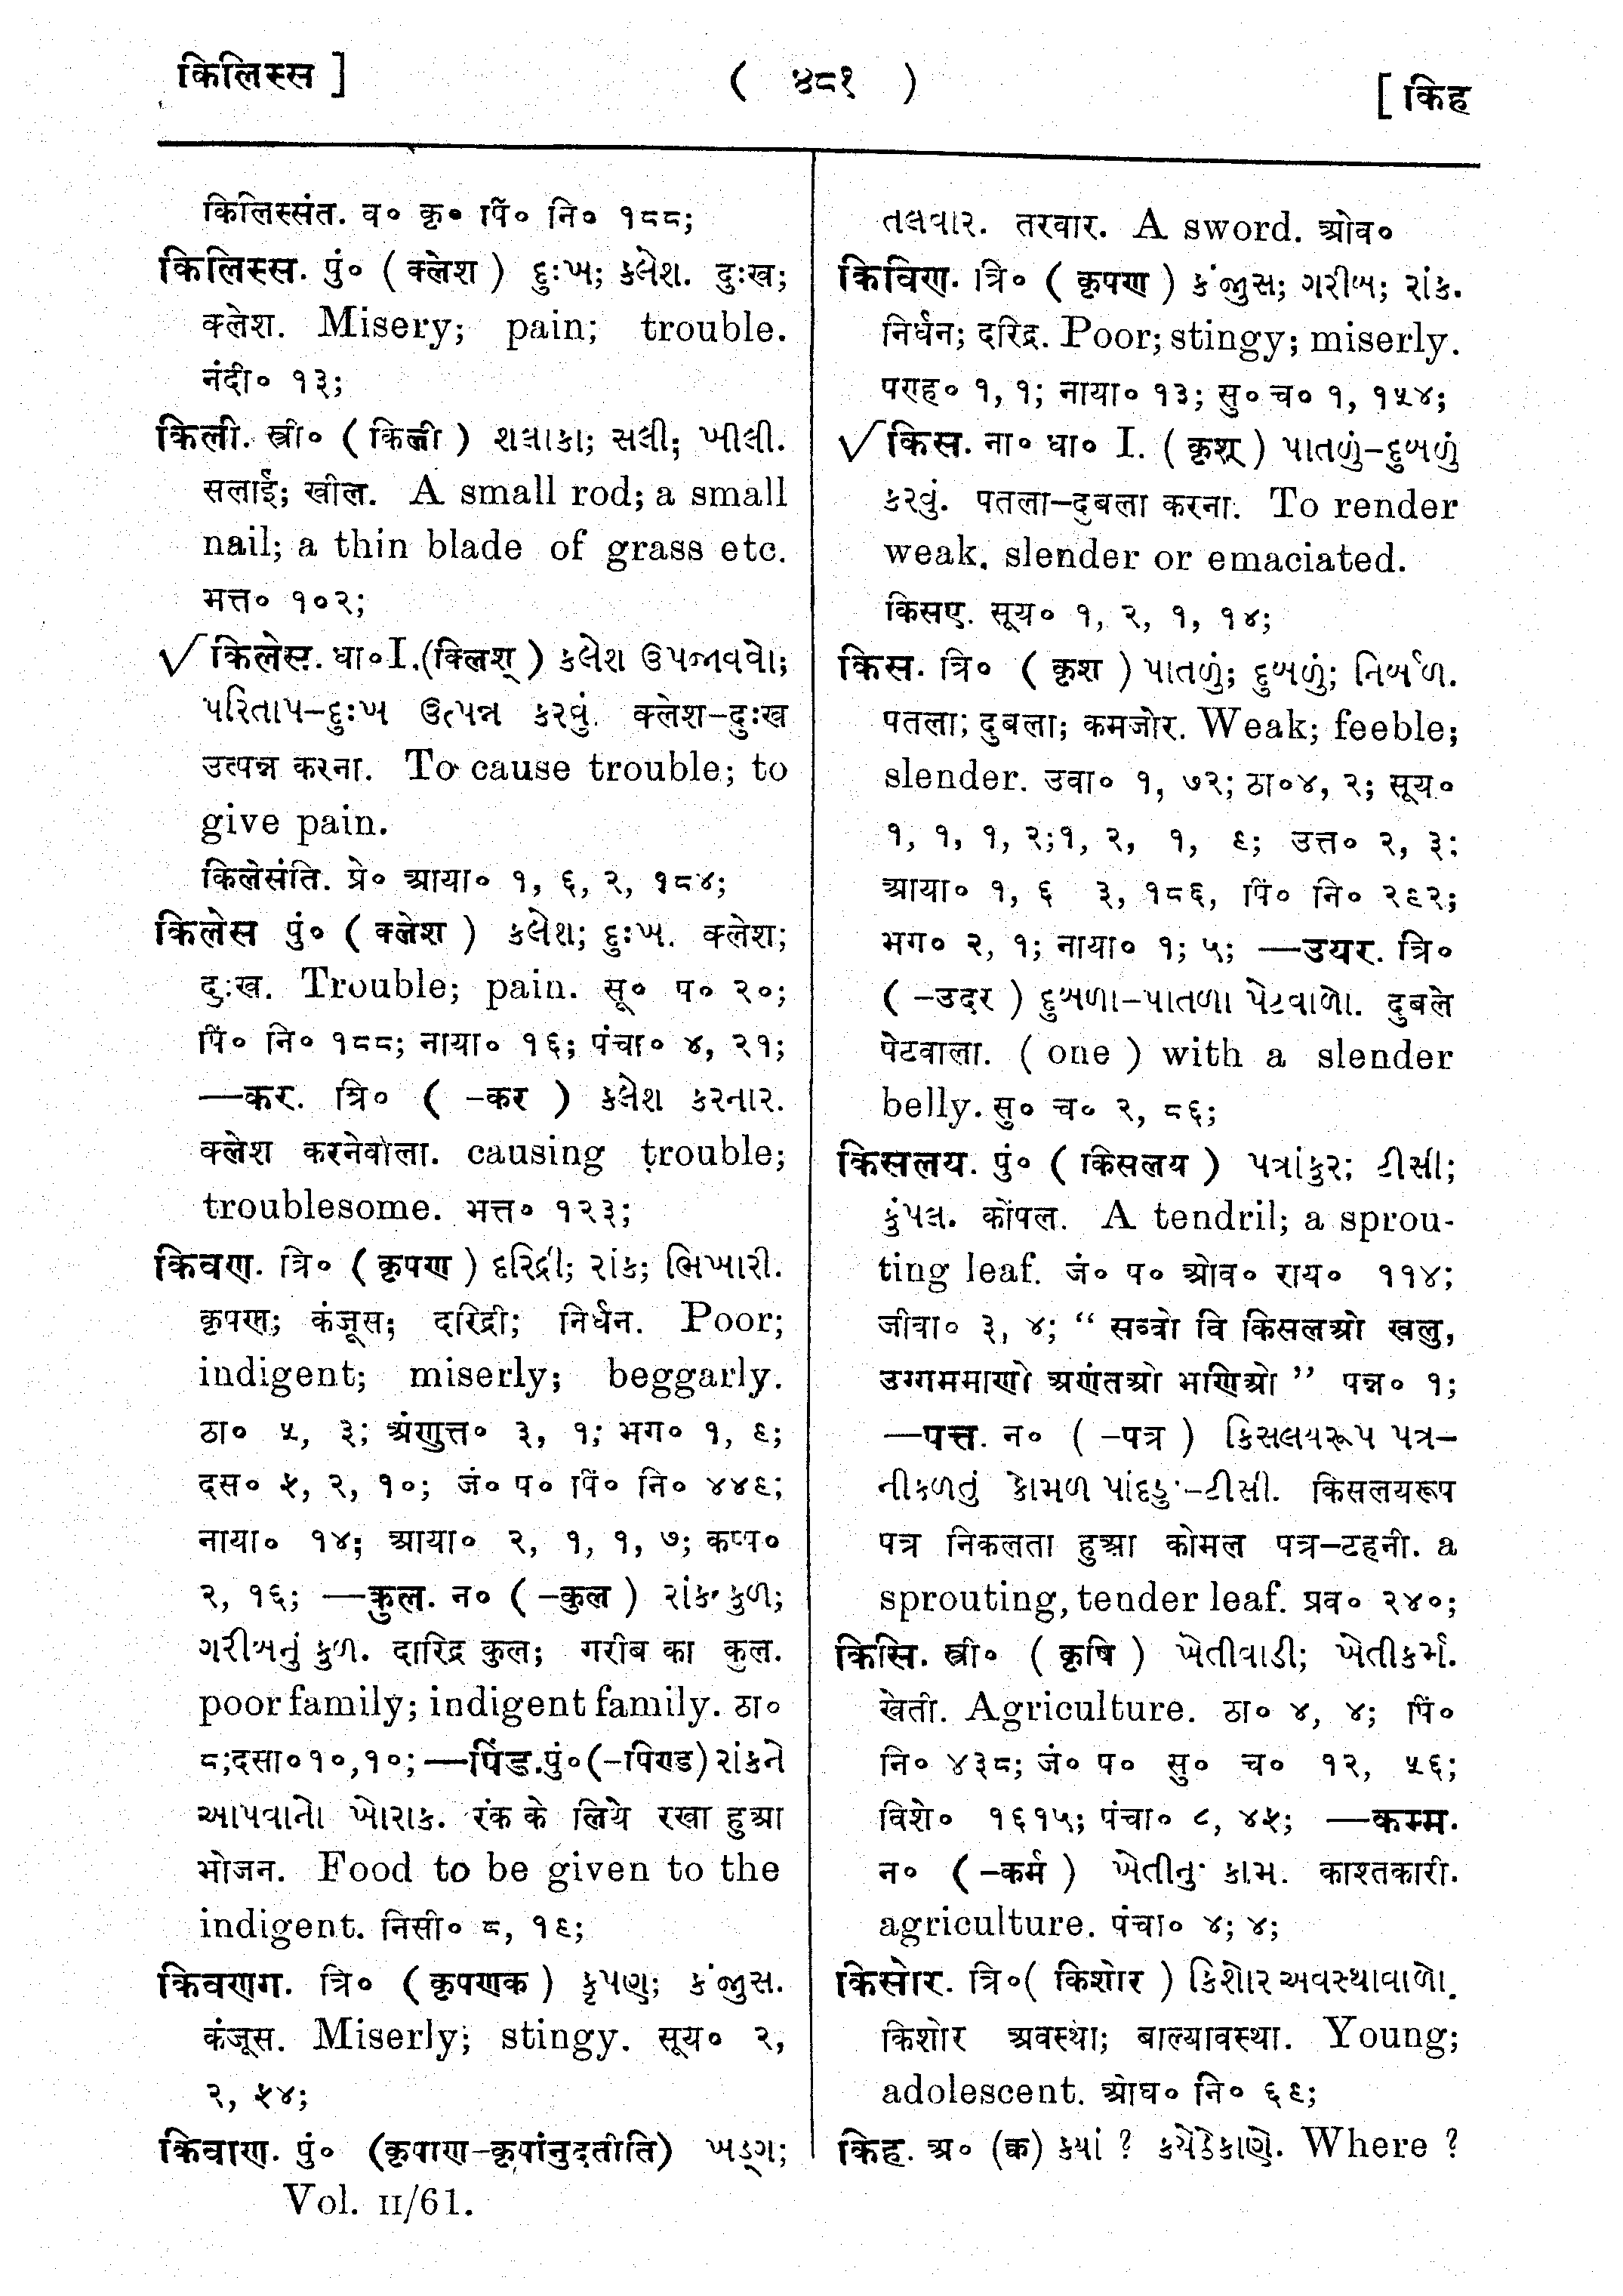 किलिस्स ]
( ४८१ )
[ किह
किलिस्संत. व० कृ० पिं० नि० १८८;
किलिस्स. पुं० ( क्लेश ) દુઃખ; કલેશ. दुःख;
क्लेश. Misery; pain; trouble.
नंदी० १३;
किली. स्त्री० ( किली ) શલાકા; સલી; ખીલી.
सलाई; खील. A small rod; a small
nail; a thin blade of grass etc.
भत्त० १०२;
√ किलेस. धा०I.(क्लिश्) કલેશ ઉપજાવવો;
પરિતાપ–દુઃખ ઉત્પન્ન કરવું. क्लेश–दुःख
उत्पन्न करना. To cause trouble; to
give pain.
किलेसंति. प्रे० आया० १, ६, २, १८४;
किलेस पुं० ( क्लेश ) કલેશ; દુઃખ. क्लेश;
दुःख. Trouble; pain. सू० प० २०;
पिं० नि० १८८; नाया० १६; पंचा० ४, २१;
—कर. त्रि० ( -कर ) કલેશ કરનાર.
क्लेश करनेवाला. causing trouble;
troublesome. भत्त० १२३;
किवण. त्रि० ( कृपण ) દરિદ્રી; રાંક; ભિખારી.
कृपण; कंजूस; दरिद्री; निर्धन. Poor;
indigent; miserly; beggarly.
ठा० ५, ३; अंणुत्त० ३, १; भग० १, ९;
दस० ५, २, १०; जं० प० पिं० नि० ४४९;
नाया० १४; आया० २, १, १, ७; कप्प०
२, १६; —कुल. न० ( -कुल ) રાંક કુળ;
ગરીબનું કુળ. दारिद्र कुल; गरीब का कुल.
poor family; indigent family. ठा०
८;दसा०१०,१०;—पिंड.पुं०(-पिण्ड) રાંકને
આપવાનો ખોરાક. रंक के लिये रखा हुआ
भोजन. Food to be given to the
indigent. निसी० ८, १९;
किवणग. त्रि० ( कृपणक ) કૃપણ; કંજુસ.
कंजूस. Miserly; stingy. सूय० २,
२, ५४;
किवाण. पुं० (कृपाण-कृपांनुदतीति) ખડ્ગ;
Vol. II/61.
તલવાર. तरवार. A sword. ओव०
किविण. त्रि० ( कृपण ) કંજુસ; ગરીબ; રાંક.
निर्धन; दरिद्र. Poor; stingy; miserly.
पण्ह० १, १; नाया० १३; सु० च० १, १५४;
√ किस. ना० धा० I. ( कृश् ) પાતળું–દુબળું
કરવું. पतला–दुबला करना. To render
weak. slender or emaciated.
किसए. सूय० १, २, १, १४;
किस. त्रि० ( कृश ) પાતળું; દુબળું; નિર્બળ.
पतला; दुबला; कमजोर. Weak; feeble;
slender. उवा० १, ७२; ठा०४, २; सूय०
१, १, १, २;१, २, १, ९; उत्त० २, ३;
आया० १, ६ ३, १८६, पिं० नि० २९२;
भग० २, १; नाया० १; ५; —उयर. त्रि०
( -उदर ) દુબળા–પાતળા પેટવાળો. दुबले
पेटवाला. ( one ) with a slender
belly. सु० च० २, ८६;
किसलय. पुं० ( किसलय ) પત્રાંકુર; ટીસી;
કુંપલ. कोंपल. A tendril; a sprou-
ting leaf. जं० प० ओव० राय० ११४;
जीवा० ३, ४; “ सव्वो वि किसलओ खलु,
उग्गममाणो अणंतओ भणिओ ” पन्न० १;
—पत्त. न० ( -पत्र ) કિસલયરૂપ પત્ર–
નીકળતું કોમળ પાંદડુ–ટીસી. किसलयरूप
पत्र निकलता हुआ कोमल पत्र–टहनी. a
sprouting, tender leaf. प्रव० २४०;
किसि. स्त्री० ( कृषि ) ખેતીવાડી; ખેતીકર્મ.
खेती. Agriculture. ठा० ४, ४; पिं०
नि० ४३८; जं० प० सु० च० १२, ५६;
विशे० १६१५; पंचा० ८, ४५; —कम्म.
न० ( -कर्म ) ખેતીનુ કામ. काश्तकारी.
agriculture. पंचा० ४; ४;
किसोर. त्रि०( किशोर ) કિશોર અવસ્થાવાળો.
किशोर अवस्था; बाल्यावस्था. Young;
adolescent. ओघ० नि० ६९;
किह. अ० (क्व) કયાં ? કયેઠેકાણે. Where ?